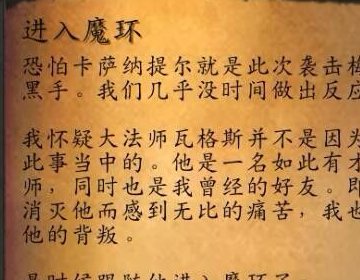 进入魔环
恐怕卡萨纳提尔就是此次袭击
黑手。我们几乎没时间做出反应
我怀疑大法师瓦格斯并不是因为
此事当中的。他是一名如此有
师，同时也是我曾经的好友。即
消灭他而感到无比的痛苦，我也
他的背叛。